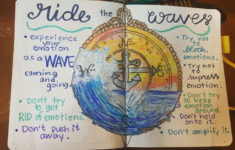 ride the waves
• experience
your
emotion
as a WAVE
coming
and
going.
• Don't try
to get
RID of emotions.
• Don't push it
away.
• Try not
to block
emotions.
• Try not to
supress
emotion.
• Don't try to
keep emotion
around.
Don't hold
onto it.
• Don't amplify it.